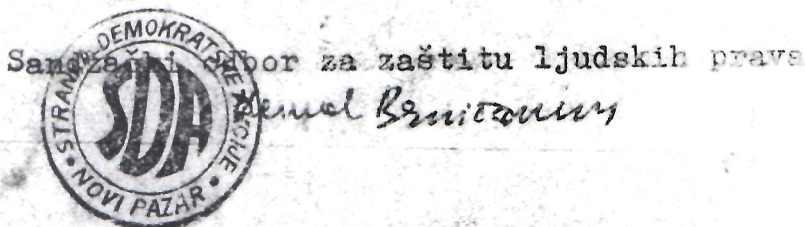 Sandžački odbor za zaštitu ljudskih prava
STRANKA DEMOKRATSKE AKCIJE
SDA
• NOVI PAZAR •